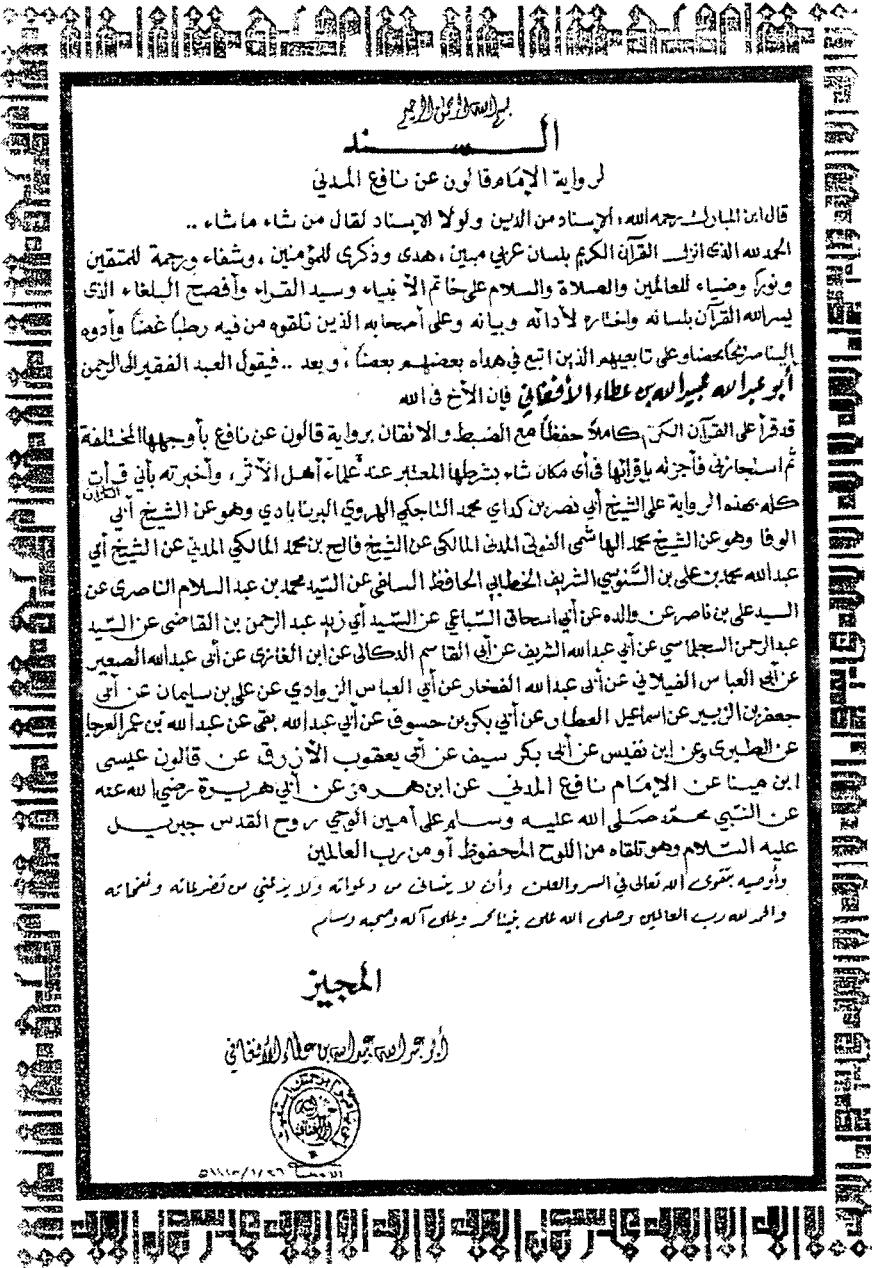 بسم الله الرحمن الرحيم
السند
لرواية الإمام قالون عن نافع المدني
قال ابن المبارك رحمه الله، الإسناد من الدين ولولا الإسناد لقال من شاء ما شاء ..
الحمد لله الذى انزل القرآن الكريم بلسان عربي مبين، هدى وذكرى للمؤمنين، وشفاء ورحمة للمتقين
ونورًا وضياء للعالمين والصلاة والسلام على خاتم الأنبياء وسيد القراء وأفصح البلغاء الذى
يسر الله القرآن بلسانه واختاره لأدائه وبيانه وعلى أصحابه الذين تلقوه من فيه رطبًا غضًا وأدوه
إلينا صريحًا محضا وعلى تابعيهم الذين اتبع فى هداه بعضهم بعضًا، وبعد .. فيقول العبد الفقير الى الرحمن
أبو عبد الله عبيد الله بن عطاء الأفغاني فإن الأخ فى الله
قد قرأ على القرآن الكريم كاملاً حفظاً مع الضبط والاتقان برواية قالون عن نافع بأوجهها المختلفة
ثم استجازنى فأجزته بإقرائها فى أى مكان شاء بشرطها المعتبر عند علماء أهل الأثر، وأخبرته بأني قرأت القرآن
كله بهذه الرواية على الشيخ أبي نصر بن كداي محمد التاجكي الهروي البرنابادي وهو عن الشيخ أبي
الوفا وهو عن الشيخ محمد الهاشمى الفوتى المدنى المالكى عن الشيخ فالح بن محمد المالكي المدني عن الشيخ أبي
عبد الله محمد بن على بن السنوسي الشريف الخطابي الحافظ السلفى عن السيد محمد بن عبد السلام الناصرى عن
السيد على بن ناصر عن والده عن أبي اسحاق السباعي عن السيد أبي زيد عبد الرحمن بن القاضى عن السيد
عبد الرحمن السجلماسي عن أبي عبد الله الشريف عن أبي القاسم الدكالى عن ابن الغازى عن أبى عبد الله الصغير
عن أبي العباس الفيلالي عن أبى عبد الله الفخار عن أبي العباس الزواوي عن على بن سليمان عن أبي
جعفر بن الزبير عن اسماعيل العطار عن أبي بكر بن حسوف عن أبي عبد الله بقى عن عبد الله بن عمر العرجا
عن الطبرى وعن ابن نفيس عن أبى بكر سيف عن أبي يعقوب الأزرق عن قالون عيسى
ابن مينا عن الإمام نافع المدني عن ابن هرمز عن أبي هريرة رضي الله عنه
عن النبي محمد صلى الله عليه وسلم على أمين الوحي روح القدس جبريل
عليه السلام وهو تلقاه من اللوح المحفوظ أو من رب العالمين
وأوصيه بتقوى الله تعالى في السر والعلن وأن لا ينسانى من دعواته ولا يدعني من تضرعاته ونفحاته
والحمد لله رب العالمين وصلى الله على نبينا محمد وعلى آله وصحبه وسلم
المجيز
أبو عبد الله عبيد الله بن عطاء الأفغاني